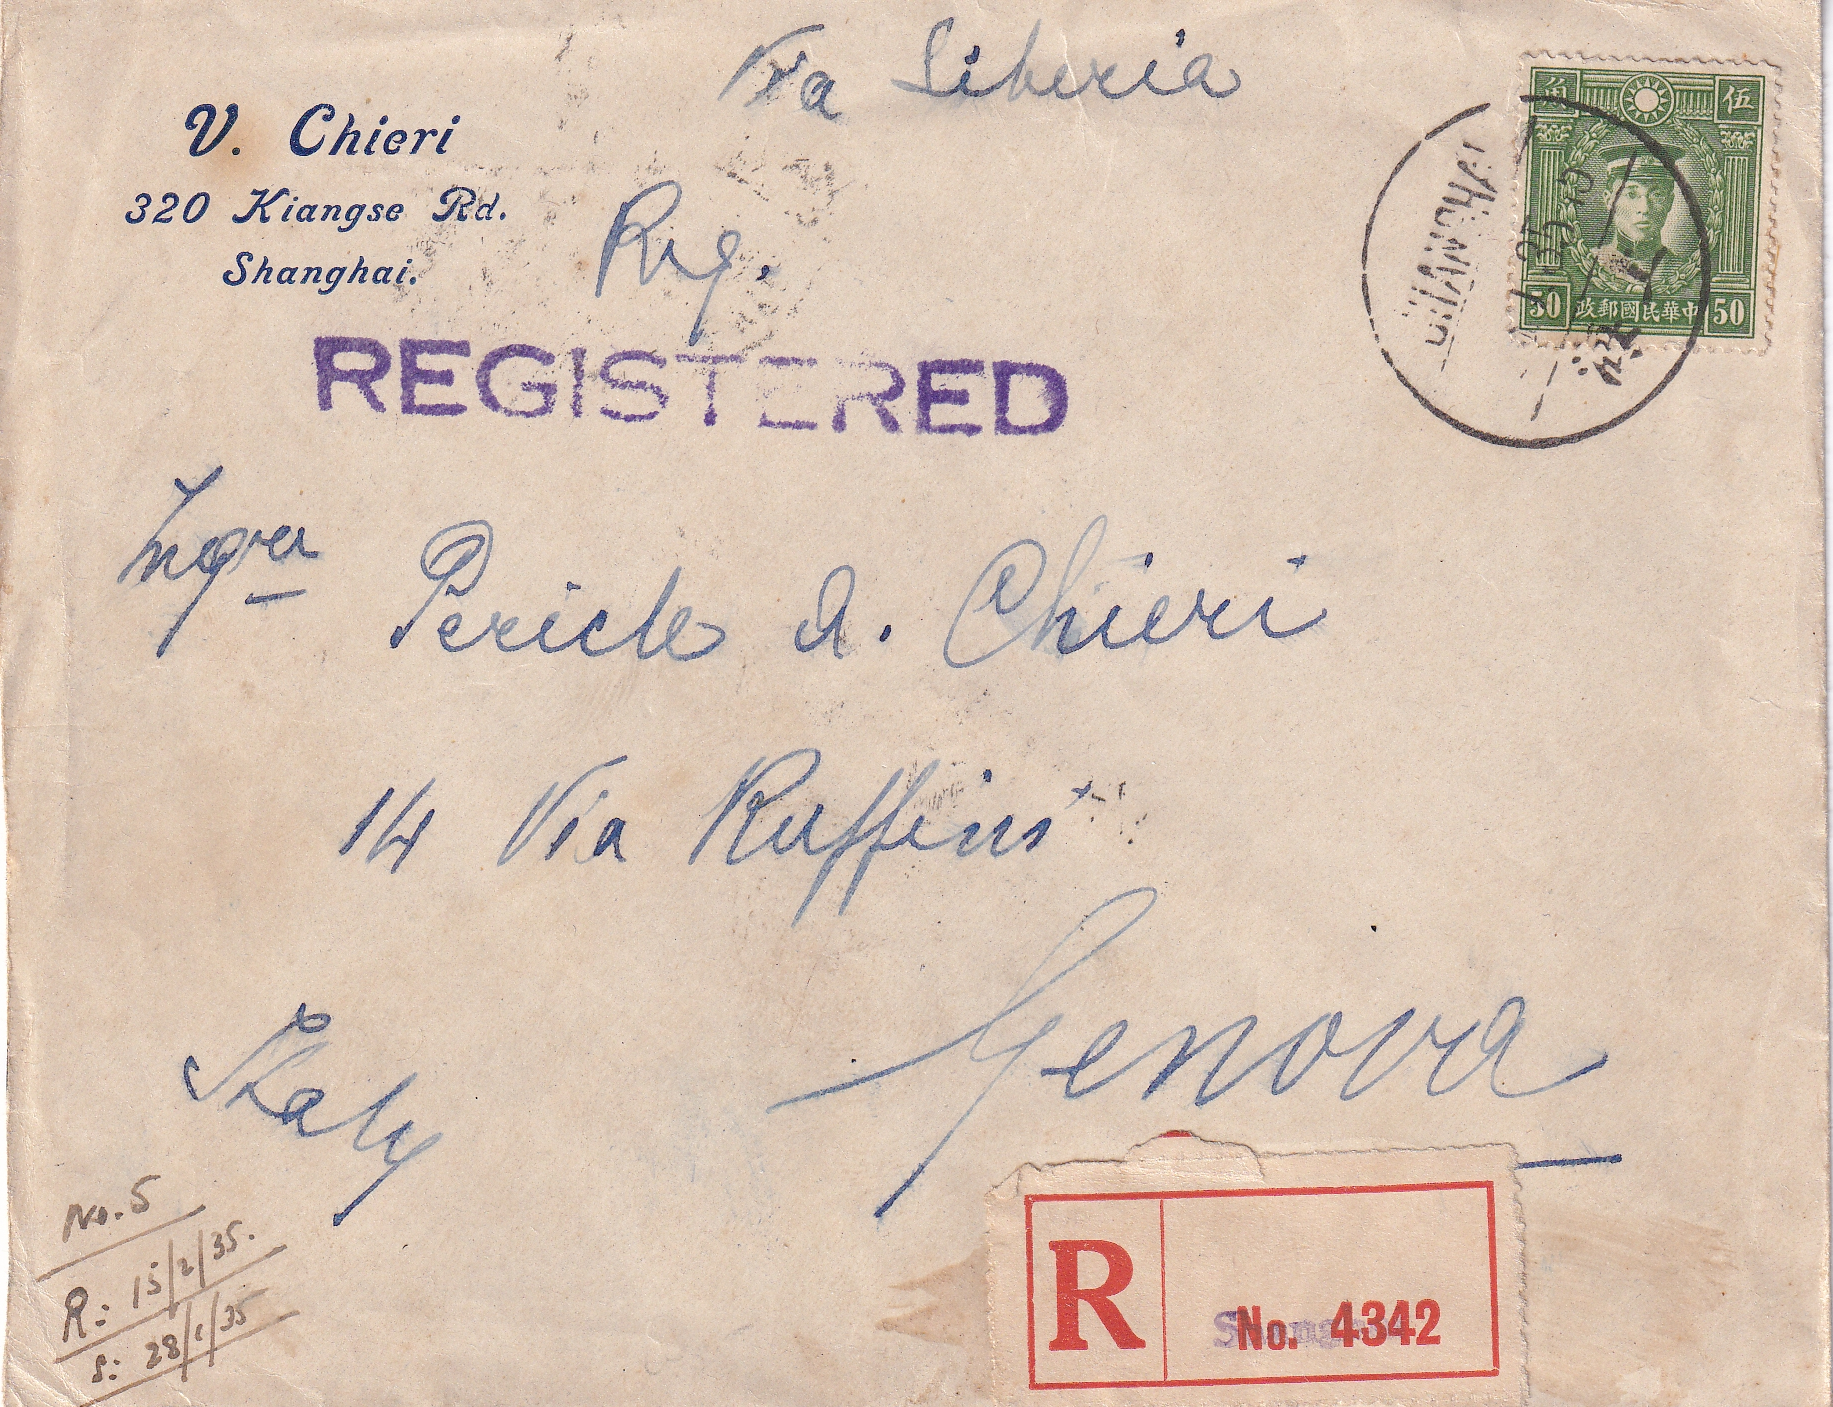 Via Siberia
V. Chieri
320 Kiangse Rd.
Shanghai.
Reg.
REGISTERED
角 伍
50 政郵國民華中 50
SHANGHAI
Pericle A. Chieri
14 Via Ruffini
Genova
Italy
No. 5
R: 15/2/35.
S: 28/1/35
R
No. 4342